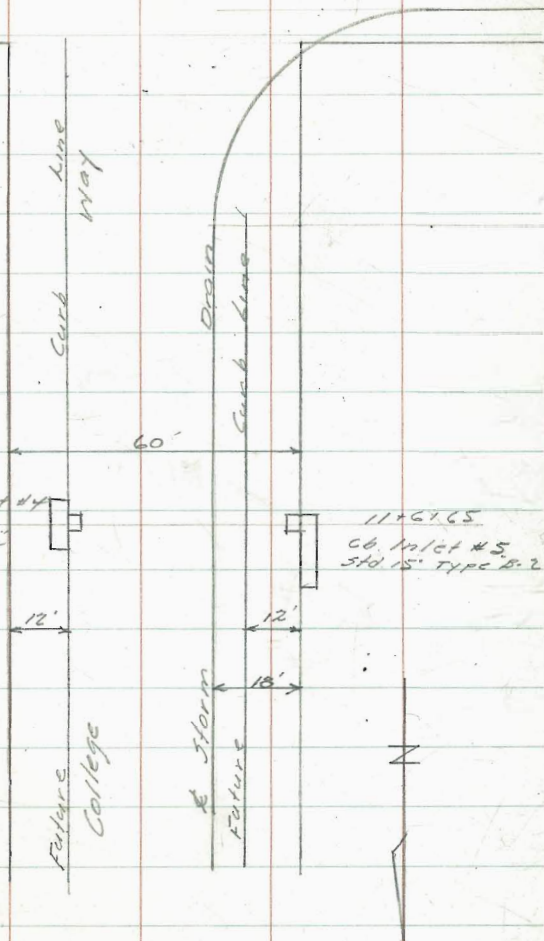 Future Curb Line
College Way
℄ Storm Drain
Future Curb Line
60'
#4
11+61.65
Cb. Inlet #5
Std. 15' Type B-2
12'
12'
18'
N